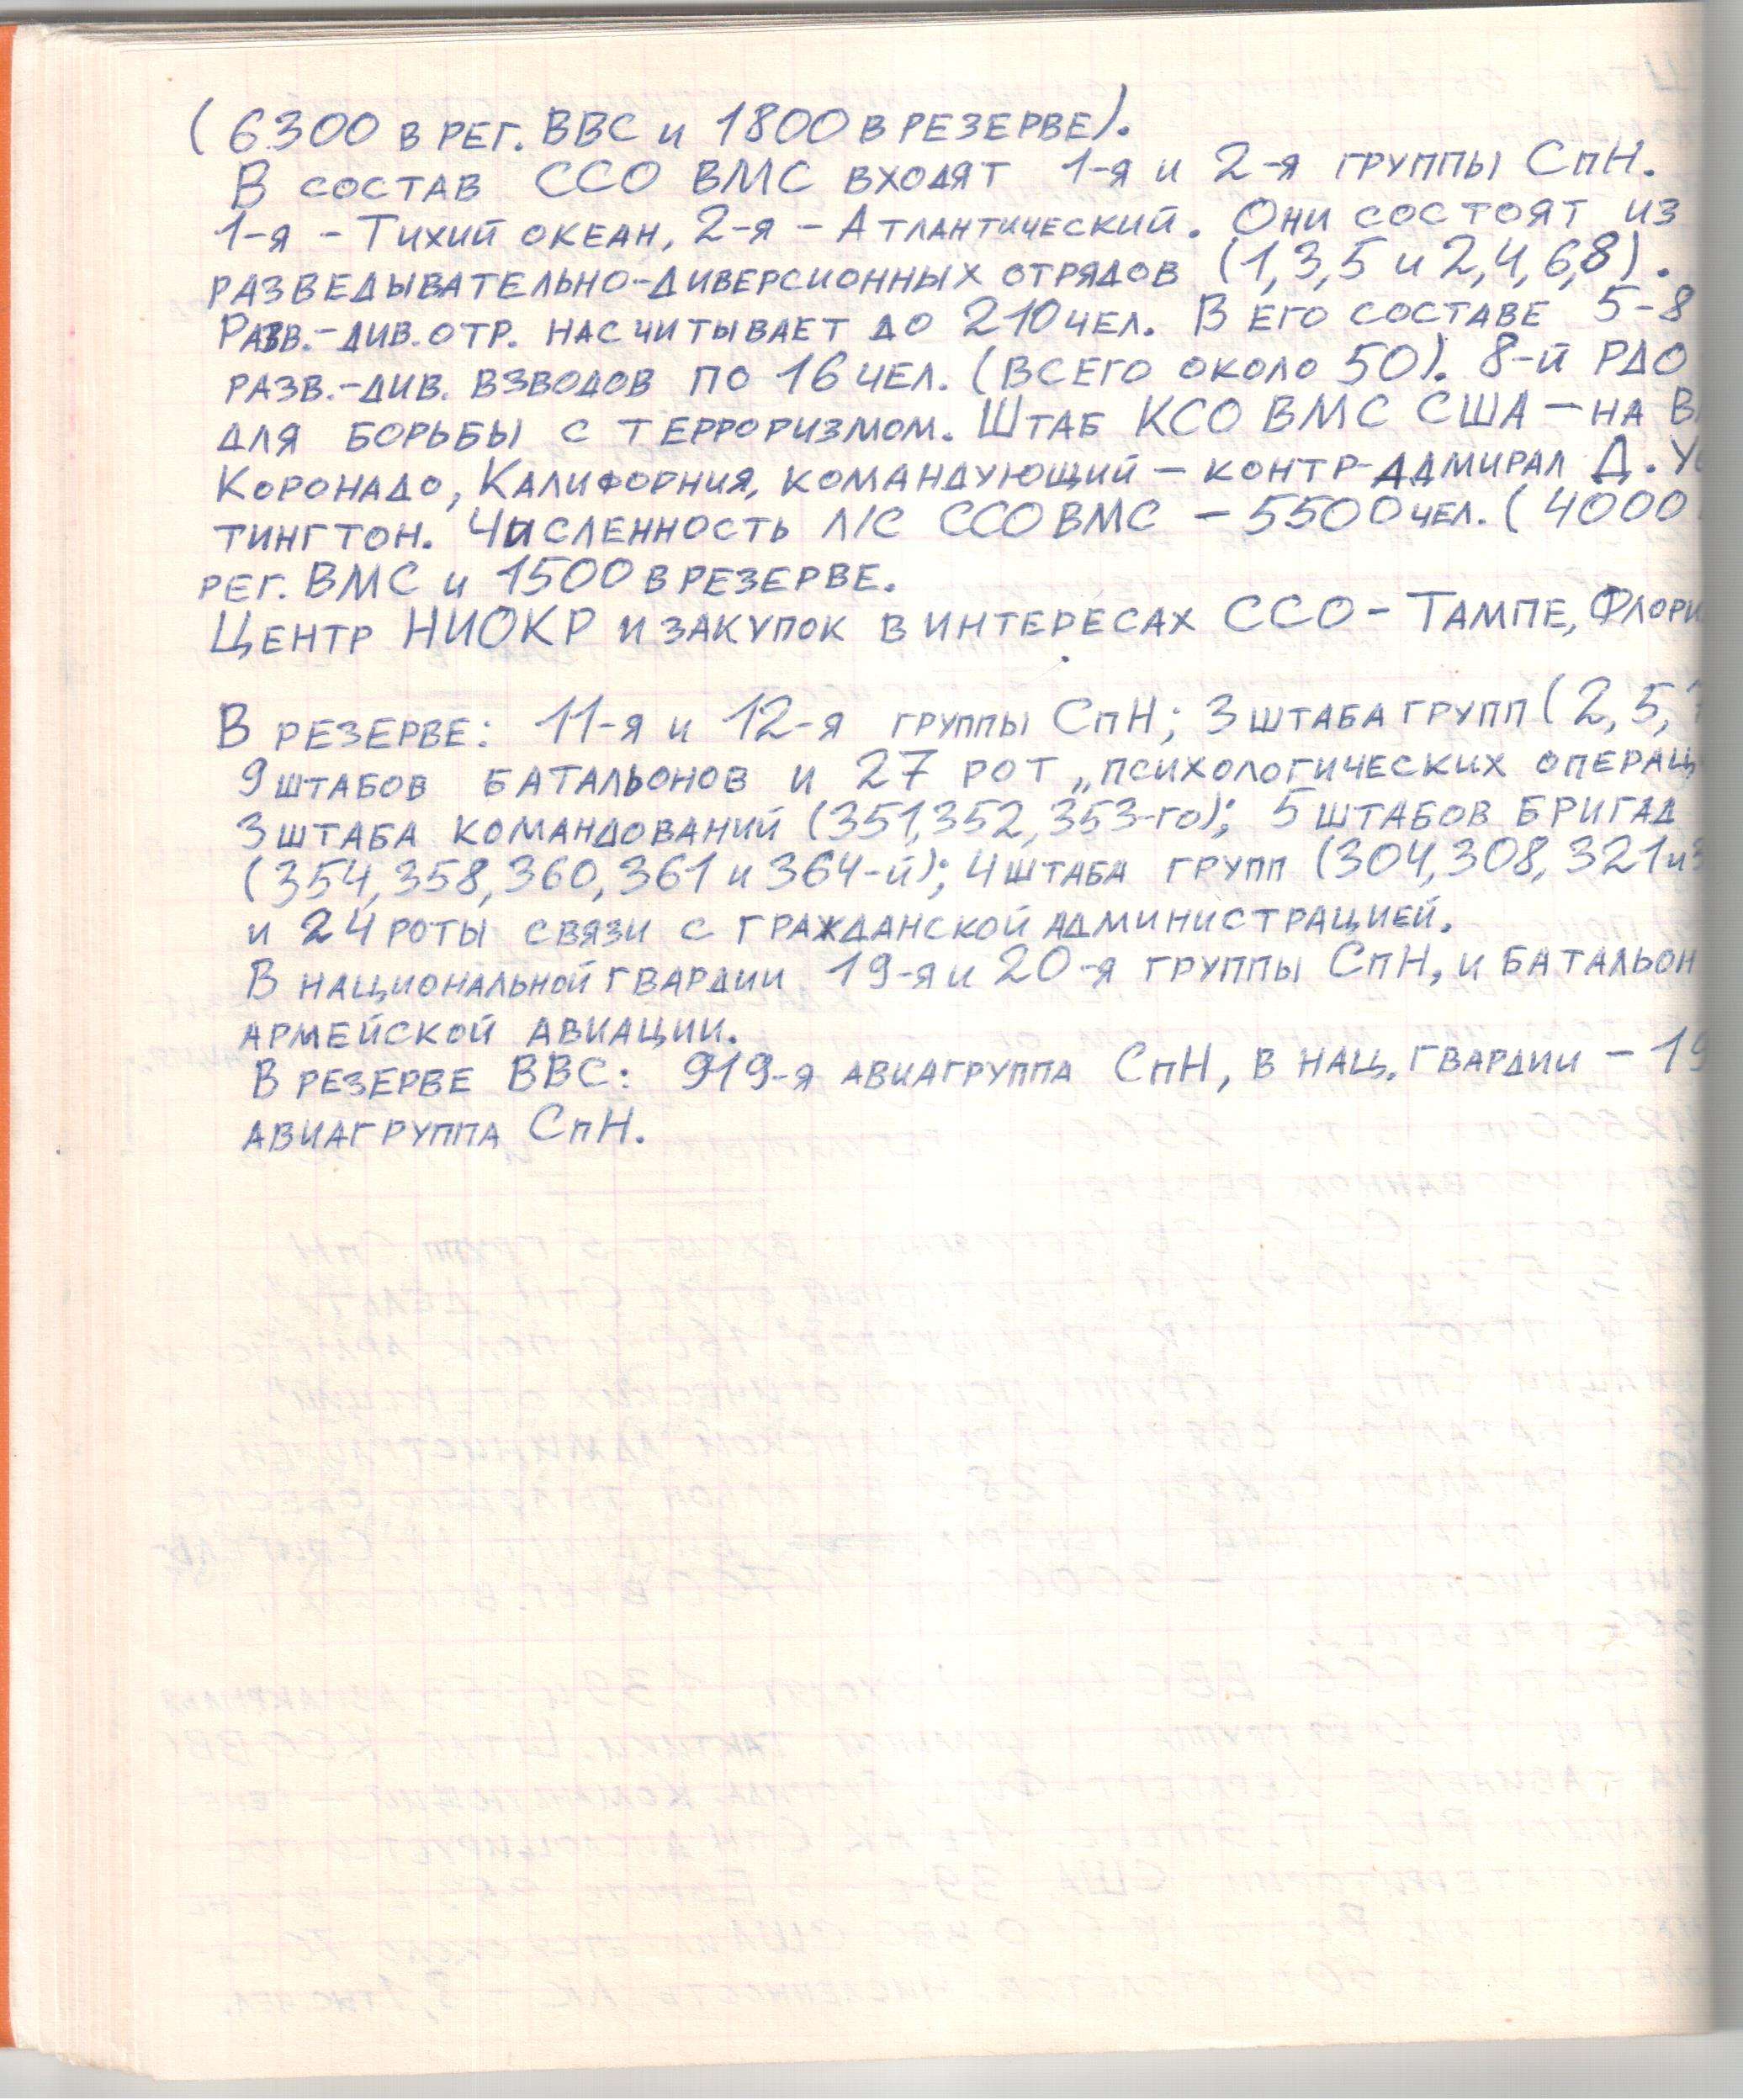 (6300 в рег. ВВС и 1800 в резерве).
В состав ССО ВМС входят 1-я и 2-я группы СпН.
1-я - Тихий океан, 2-я - Атлантический. Они состоят из
разведывательно-диверсионных отрядов (1,3,5 и 2,4,6,8).
Разв.-див. отр. насчитывает до 210 чел. В его составе 5-8
разв.-див. взводов по 16 чел. (всего около 50). 8-й РДО
для борьбы с терроризмом. Штаб КСО ВМС США - на
Коронадо, Калифорния, командующий - контр-адмирал Д.
тингтон. Численность л/с ССО ВМС - 5500 чел. (4000
рег. ВМС и 1500 в резерве.
Центр НИОКР и закупок в интересах ССО - Тампе, Флори
В резерве: 11-я и 12-я группы СпН; 3 штаба групп (2, 5,
9 штабов батальонов и 27 рот „психологических операц
3 штаба командований (351, 352, 353-го); 5 штабов бригад
(354, 358, 360, 361 и 364-й); 4 штаба групп (304, 308, 321 и
и 24 роты связи с гражданской администрацией.
В национальной гвардии 19-я и 20-я группы СпН, и батальон
армейской авиации.
В резерве ВВС: 919-я авиагруппа СпН, в нац. гвардии - 19
авиагруппа СпН.